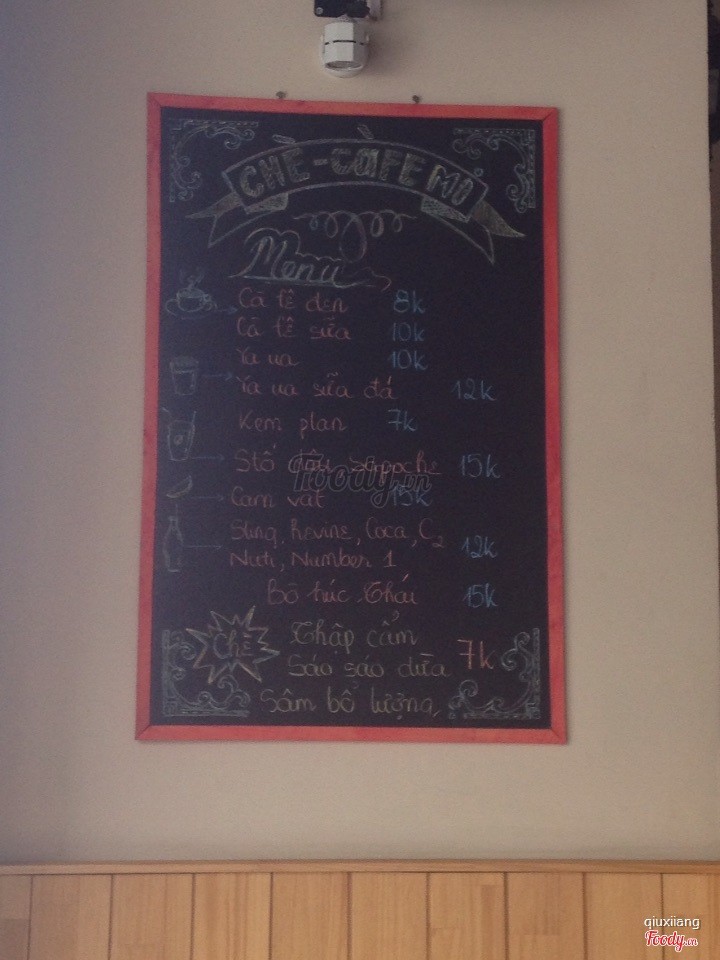 CHÈ-CÀFE MỞ
Menu
Cà fê đen 8k
Cà fê sữa 10k
Ya ua 10k
Ya ua sữa đá 12k
Kem plan 7k
Stố dâu sapoche 15k
Foody.vn
Cam vắt 15k
Sting, Revive, Coca, C2
Nuti, Number 1 12k
Bò húc Thái 15k
Chè Thập cẩm
Sáo sáo dừa 7k
Sâm bổ lượng
qiuxiiang
Foody.vn